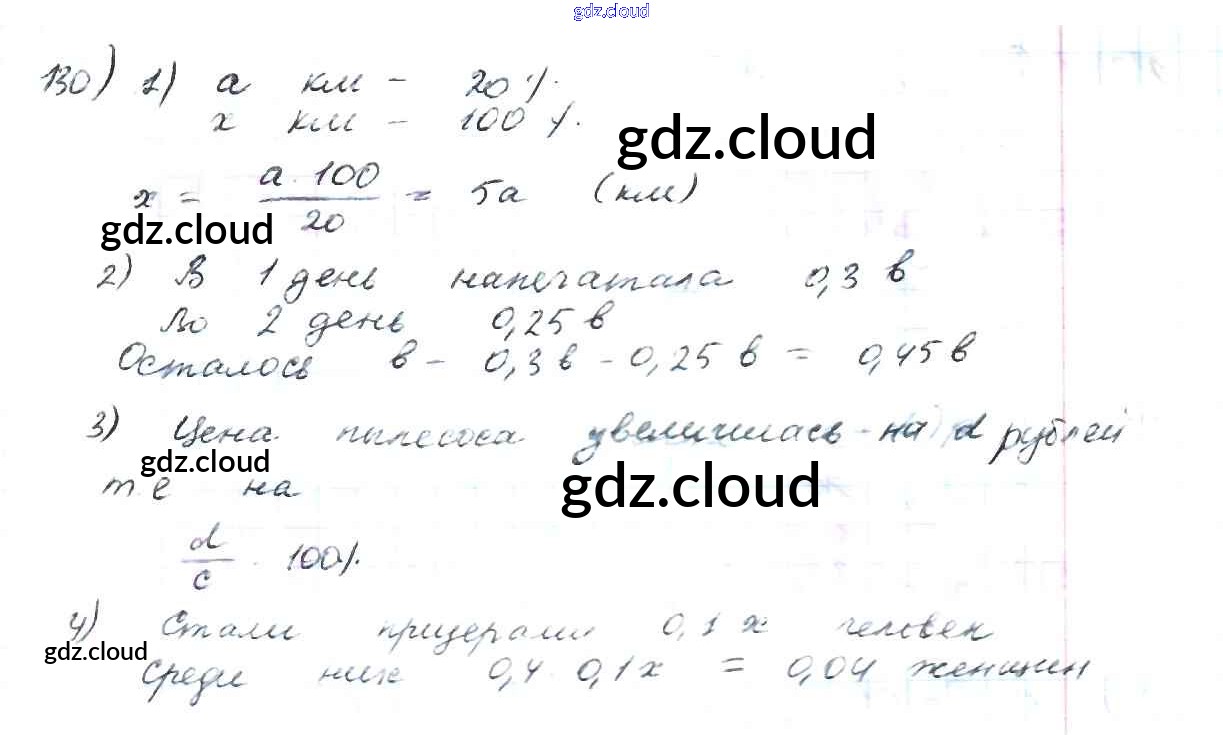 gdz.cloud
130) 1) a км - 20 %.
x км - 100 %.
gdz.cloud
x = a · 100 / 20 = 5a (км)
gdz.cloud
2) В 1 день напечатала 0,3 в
Во 2 день 0,25 в
Осталось в - 0,3 в - 0,25 в = 0,45 в
3) Цена пылесоса увеличилась на d рублей
gdz.cloud
т.е на
gdz.cloud
d / c · 100%.
4) Стали призерами 0,1 x человек
gdz.cloud
Среди них 0,4 · 0,1 x = 0,04 женщин